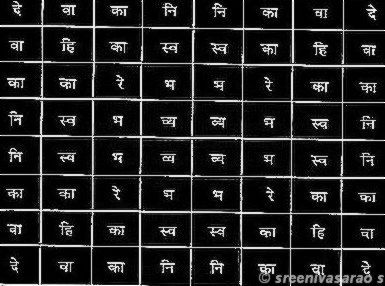 दे वा का नि नि का वा दे
वा हि का स्व स्व का हि वा
का का रे भ भ रे का का
नि स्व भ व्य व्य भ स्व नि
नि स्व भ व्य व्य भ स्व नि
का का रे भ भ रे का का
वा हि का स्व स्व का हि वा
दे वा का नि नि का वा दे
© sreenivasarao s